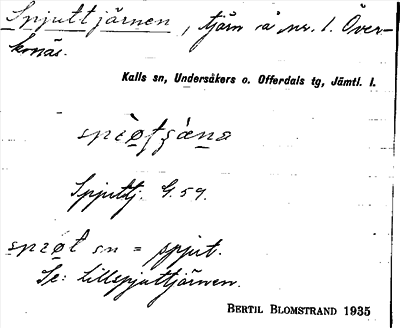 Spjuttjärnen, tjärn å nr. 1. Över-
känäs.
Kalls sn, Undersåkers o. Offerdals tg, Jämtl. l.
Spjuttj. G. 59.
sn = spjut.
Se: Lillspjuttjärnen.
BERTIL BLOMSTRAND 1935